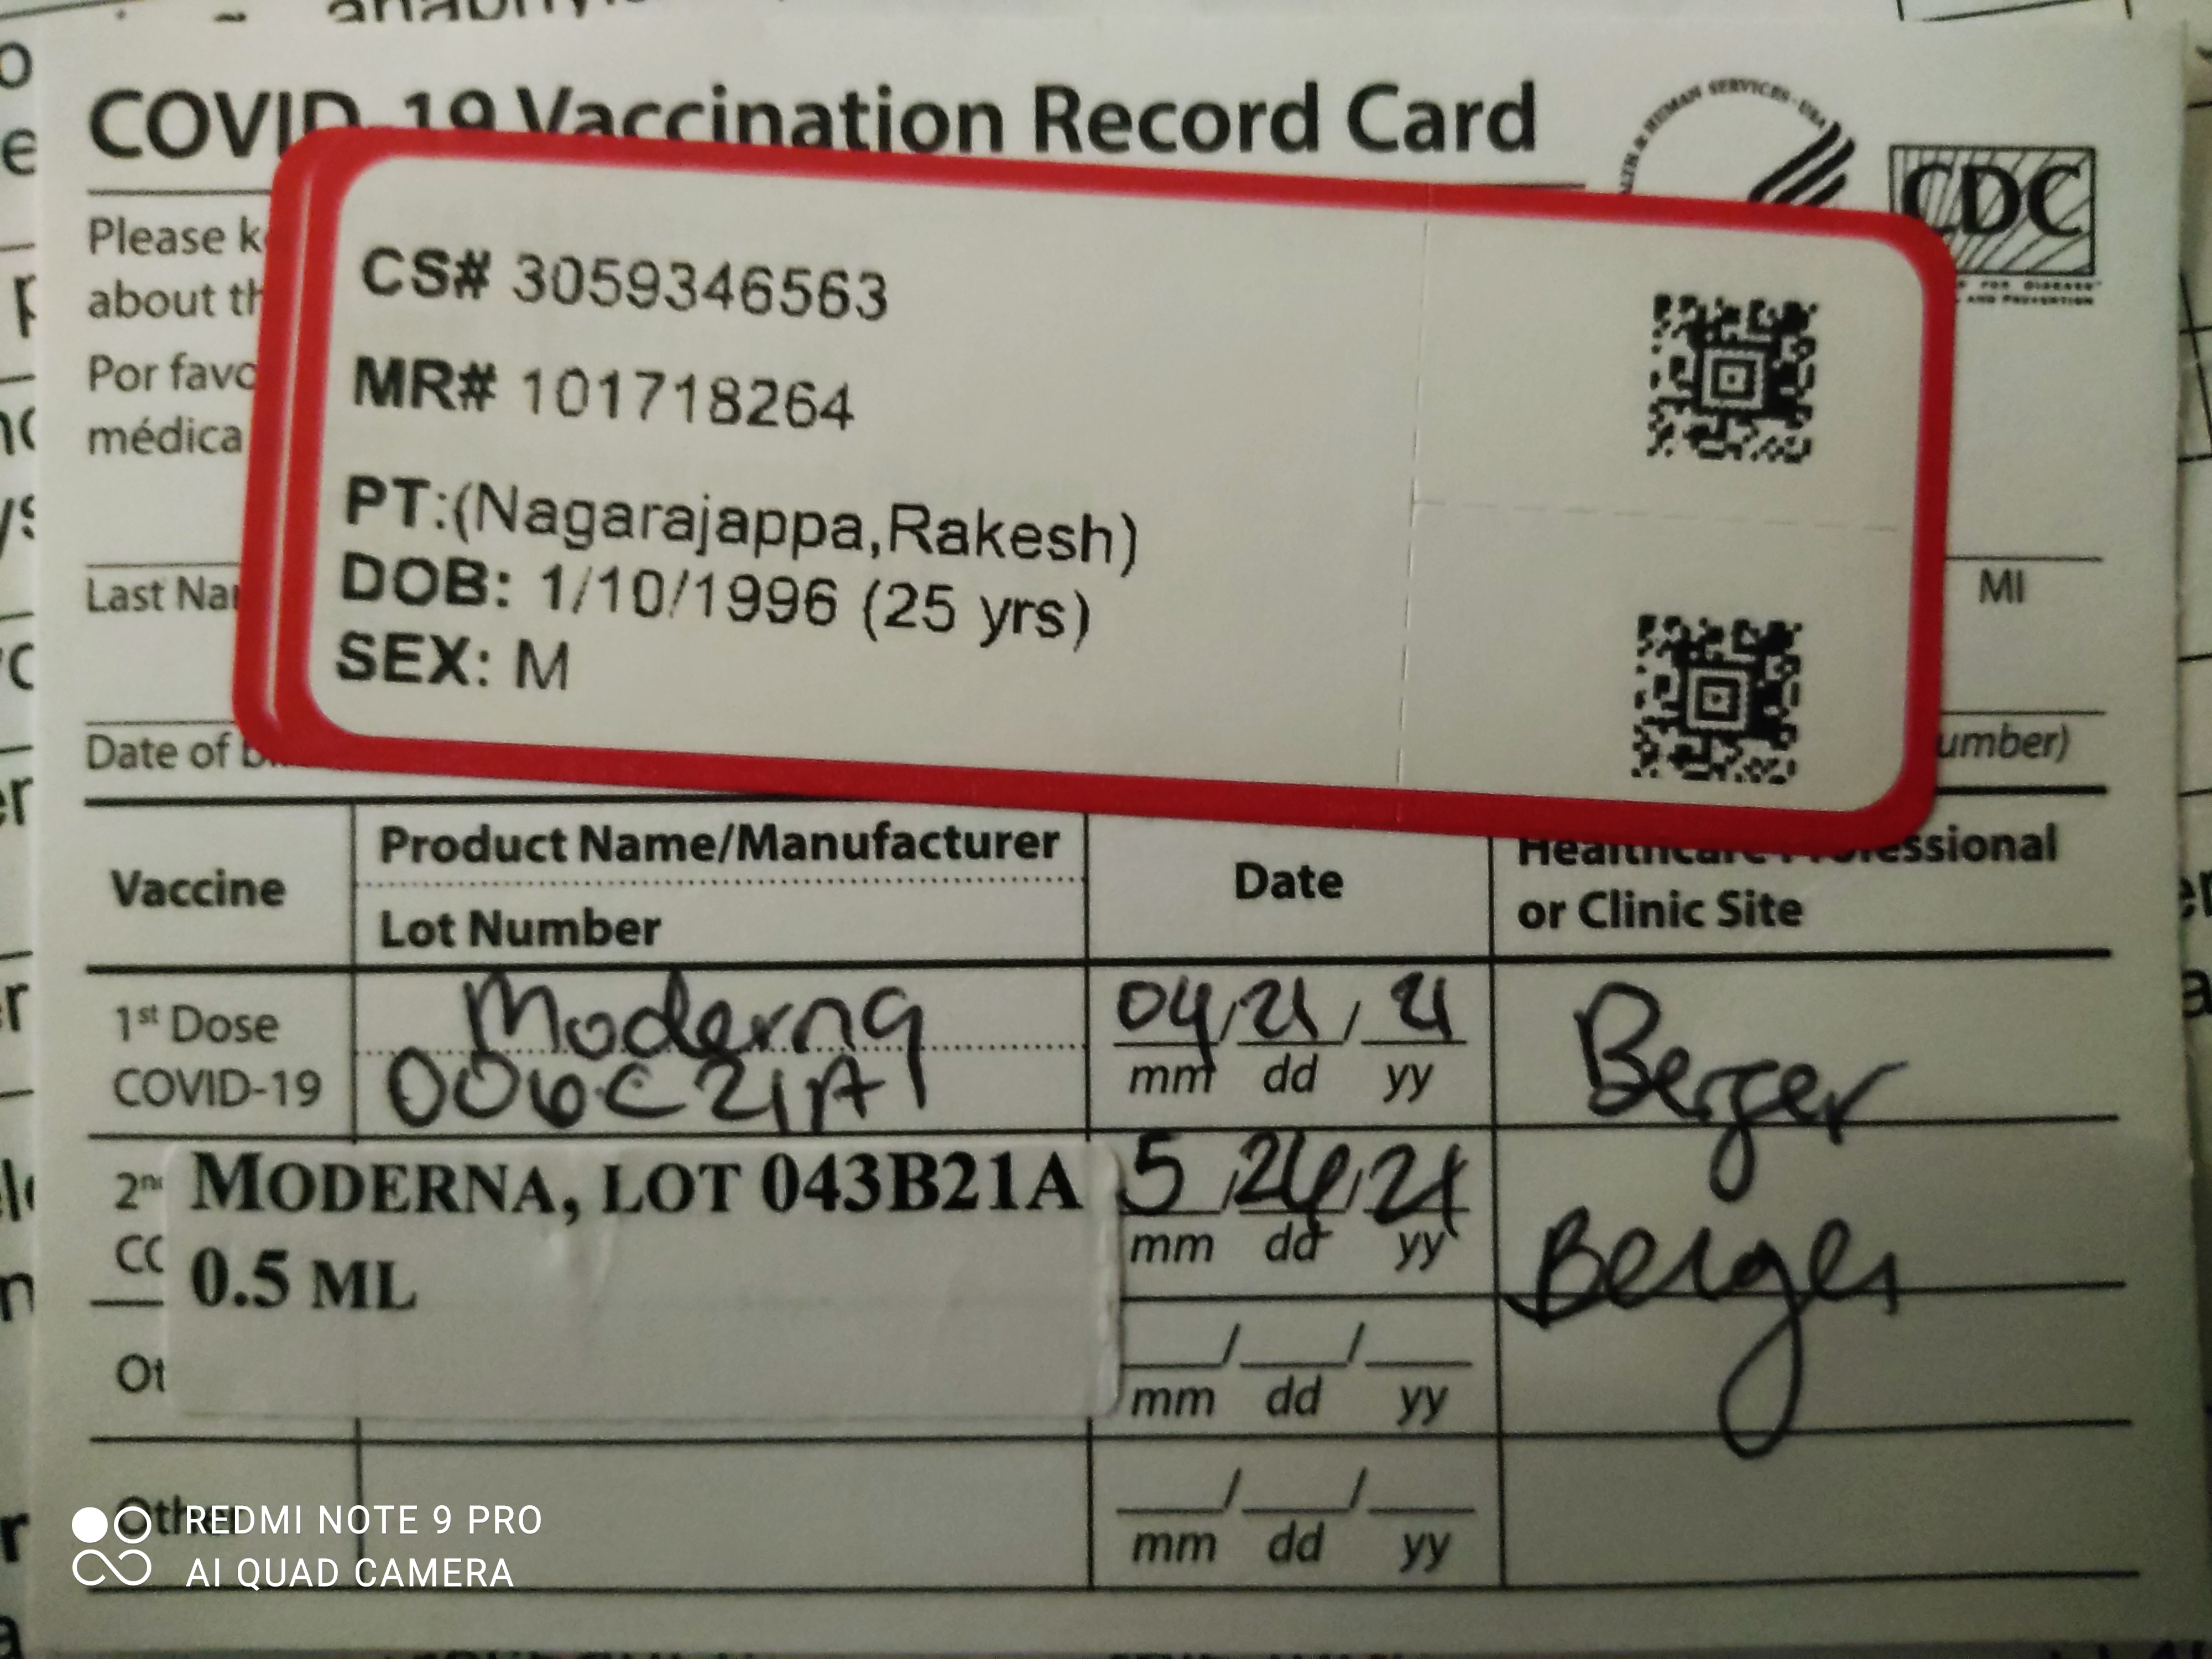 COVID-19 Vaccination Record Card
HUMAN SERVICES · USA
CDC
FOR DISEASE
AND PREVENTION
Please k
about th
Por favo
médica
CS# 3059346563
MR# 101718264
PT:(Nagarajappa,Rakesh)
DOB: 1/10/1996 (25 yrs)
SEX: M
Last Na
MI
Date of
umber)
Vaccine
Product Name/Manufacturer
Lot Number
Date
Healthcare Professional
or Clinic Site
1st Dose
COVID-19
Moderna
006C21A
04/21/21
mm dd yy
Berger
2nd
MODERNA, LOT 043B21A
0.5 ML
5/ /21
mm dd yy
Berger
Ot
mm dd yy
Other
mm dd yy
REDMI NOTE 9 PRO
AI QUAD CAMERA